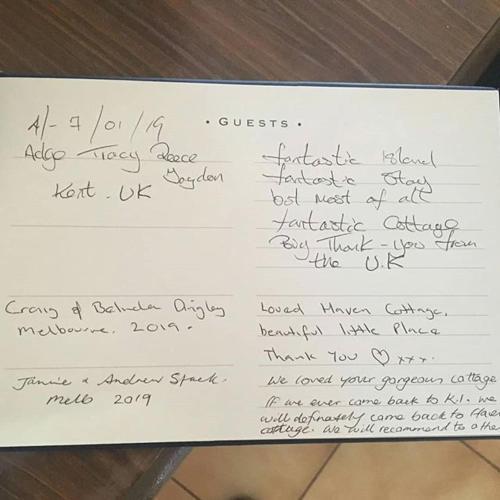 • GUESTS •
A/- 7/01/19
Adge Tracy Reece
Jaydon
Kent. UK
fantastic Island
fantastic Stay
but most of all
fantastic Cottage
Big Thank-you from
the U.K
Craig & Belinda
Melbourne. 2019.
Loved Haven Cottage,
beautiful little Place
Thank You ♡ xxx.
Jannie & Andrew Stack.
Melb 2019
We loved your gorgeous cottage
If we ever come back to K.I. we
will definately come back to Haven
cottage. We will recommend to othe